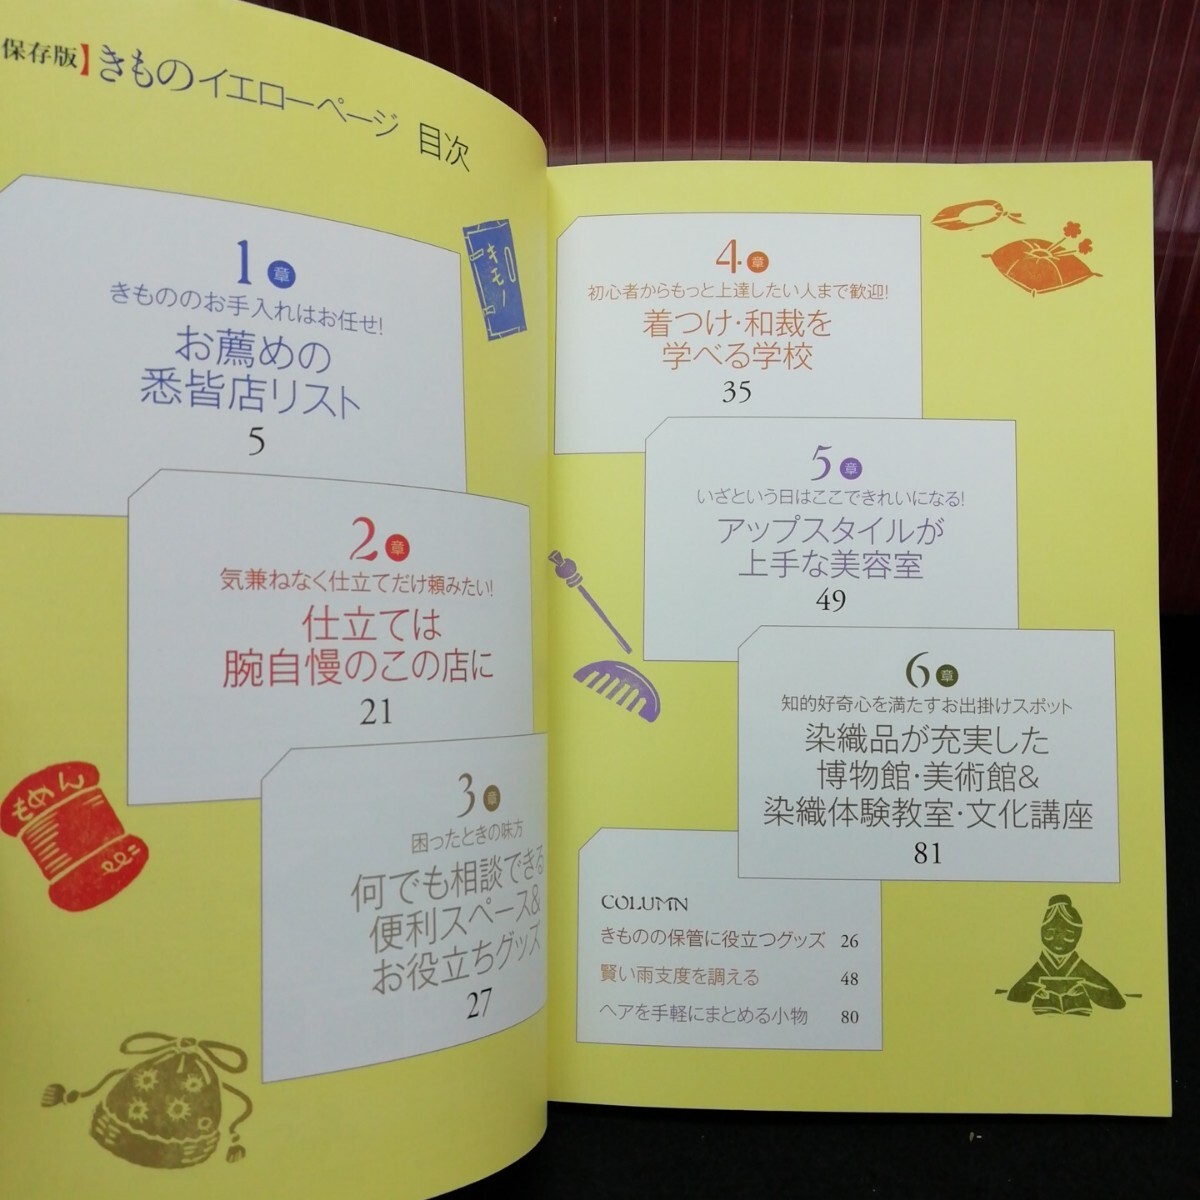 保存版】きものイエローページ 目次
1章
きもののお手入れはお任せ!
お薦めの
悉皆店リスト
5
キモノ
2章
気兼ねなく仕立てだけ頼みたい!
仕立ては
腕自慢のこの店に
21
もめん
3章
困ったときの味方
何でも相談できる
便利スペース&
お役立ちグッズ
27
4章
初心者からもっと上達したい人まで歓迎!
着つけ・和裁を
学べる学校
35
5章
いざという日はここできれいになる!
アップスタイルが
上手な美容室
49
6章
知的好奇心を満たすお出掛けスポット
染織品が充実した
博物館・美術館&
染織体験教室・文化講座
81
COLUMN
きものの保管に役立つグッズ 26
賢い雨支度を調える 48
ヘアを手軽にまとめる小物 80